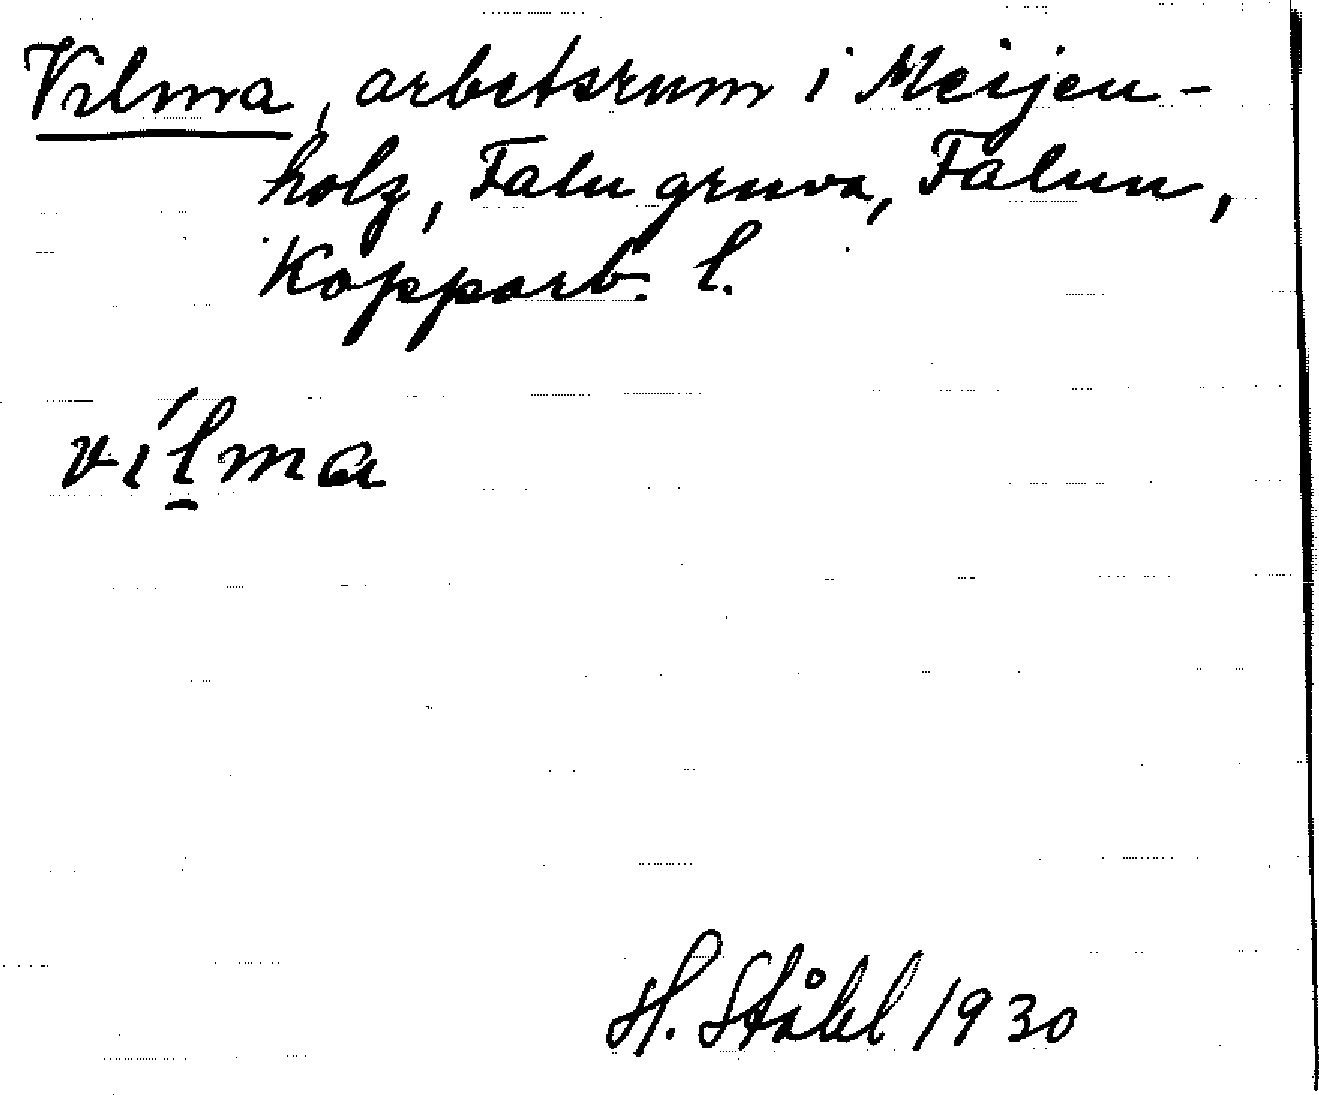 Vilma, arbetsrum i Meijen-
holz, Falu gruva, Falun,
Kopparb. l.
vílma
H. Ståhl 1930